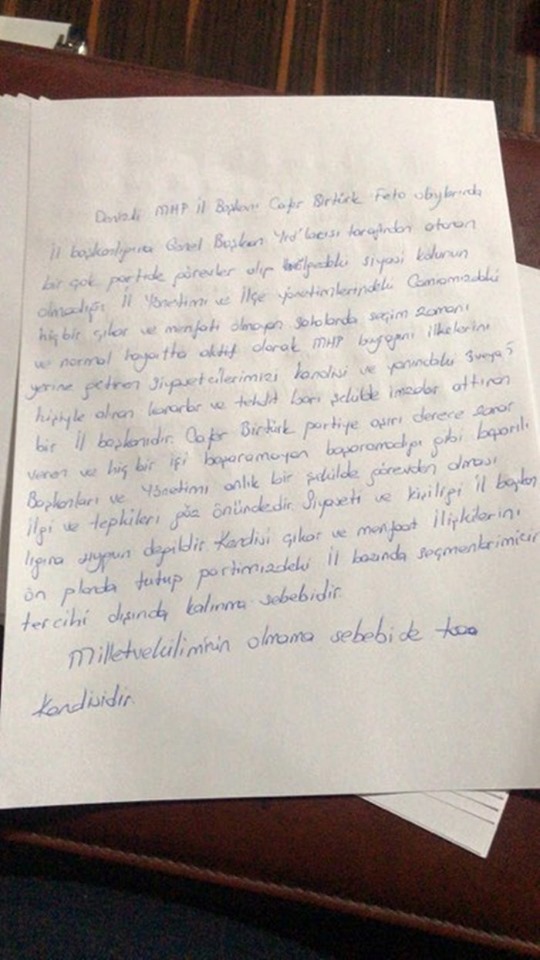 Denizli MHP İl Başkanı Cafer Birtürk Feto
İl başkanlığına Genel Başkan Yrd'lacısı tarafından oturan
bir çok partide görevler alıp bölgedeki siyasi kolunun
olmadığı İl Yönetimi ve İlçe yönetimlerindeki Camiamızdaki
hiç bir çıkar ve menfati olmayan sahalarda seçim zamanı
ve normal hayatta aktif olarak MHP bayrağını ilkelerini
yerine getiren siyasetcilerimizi kendisi ve yanındaki 3 veya 5
kişiyle alınan kararlar ve tehdit barı şekilde imzalar attıran
bir İl başkanıdır. Cafer Birtürk partiye aşırı derece zarar
veren ve hiç bir işi başaramayan başaramadığı gibi başarılı
Başkanları ve Yönetimi anlık bir şekilde görevden alması
ilgi ve tepkileri göz önündedir. Siyaseti ve kişiliği İl başkan
lığına uygun değildir. Kendisi çıkar ve menfaat İlişkilerini
ön planda tutup partimizdeki İl bazında seçmenlerimizin
tercihi dışında kalınma sebebidir.
Milletvekiliminin olmama sebebi de
Kendisidir.